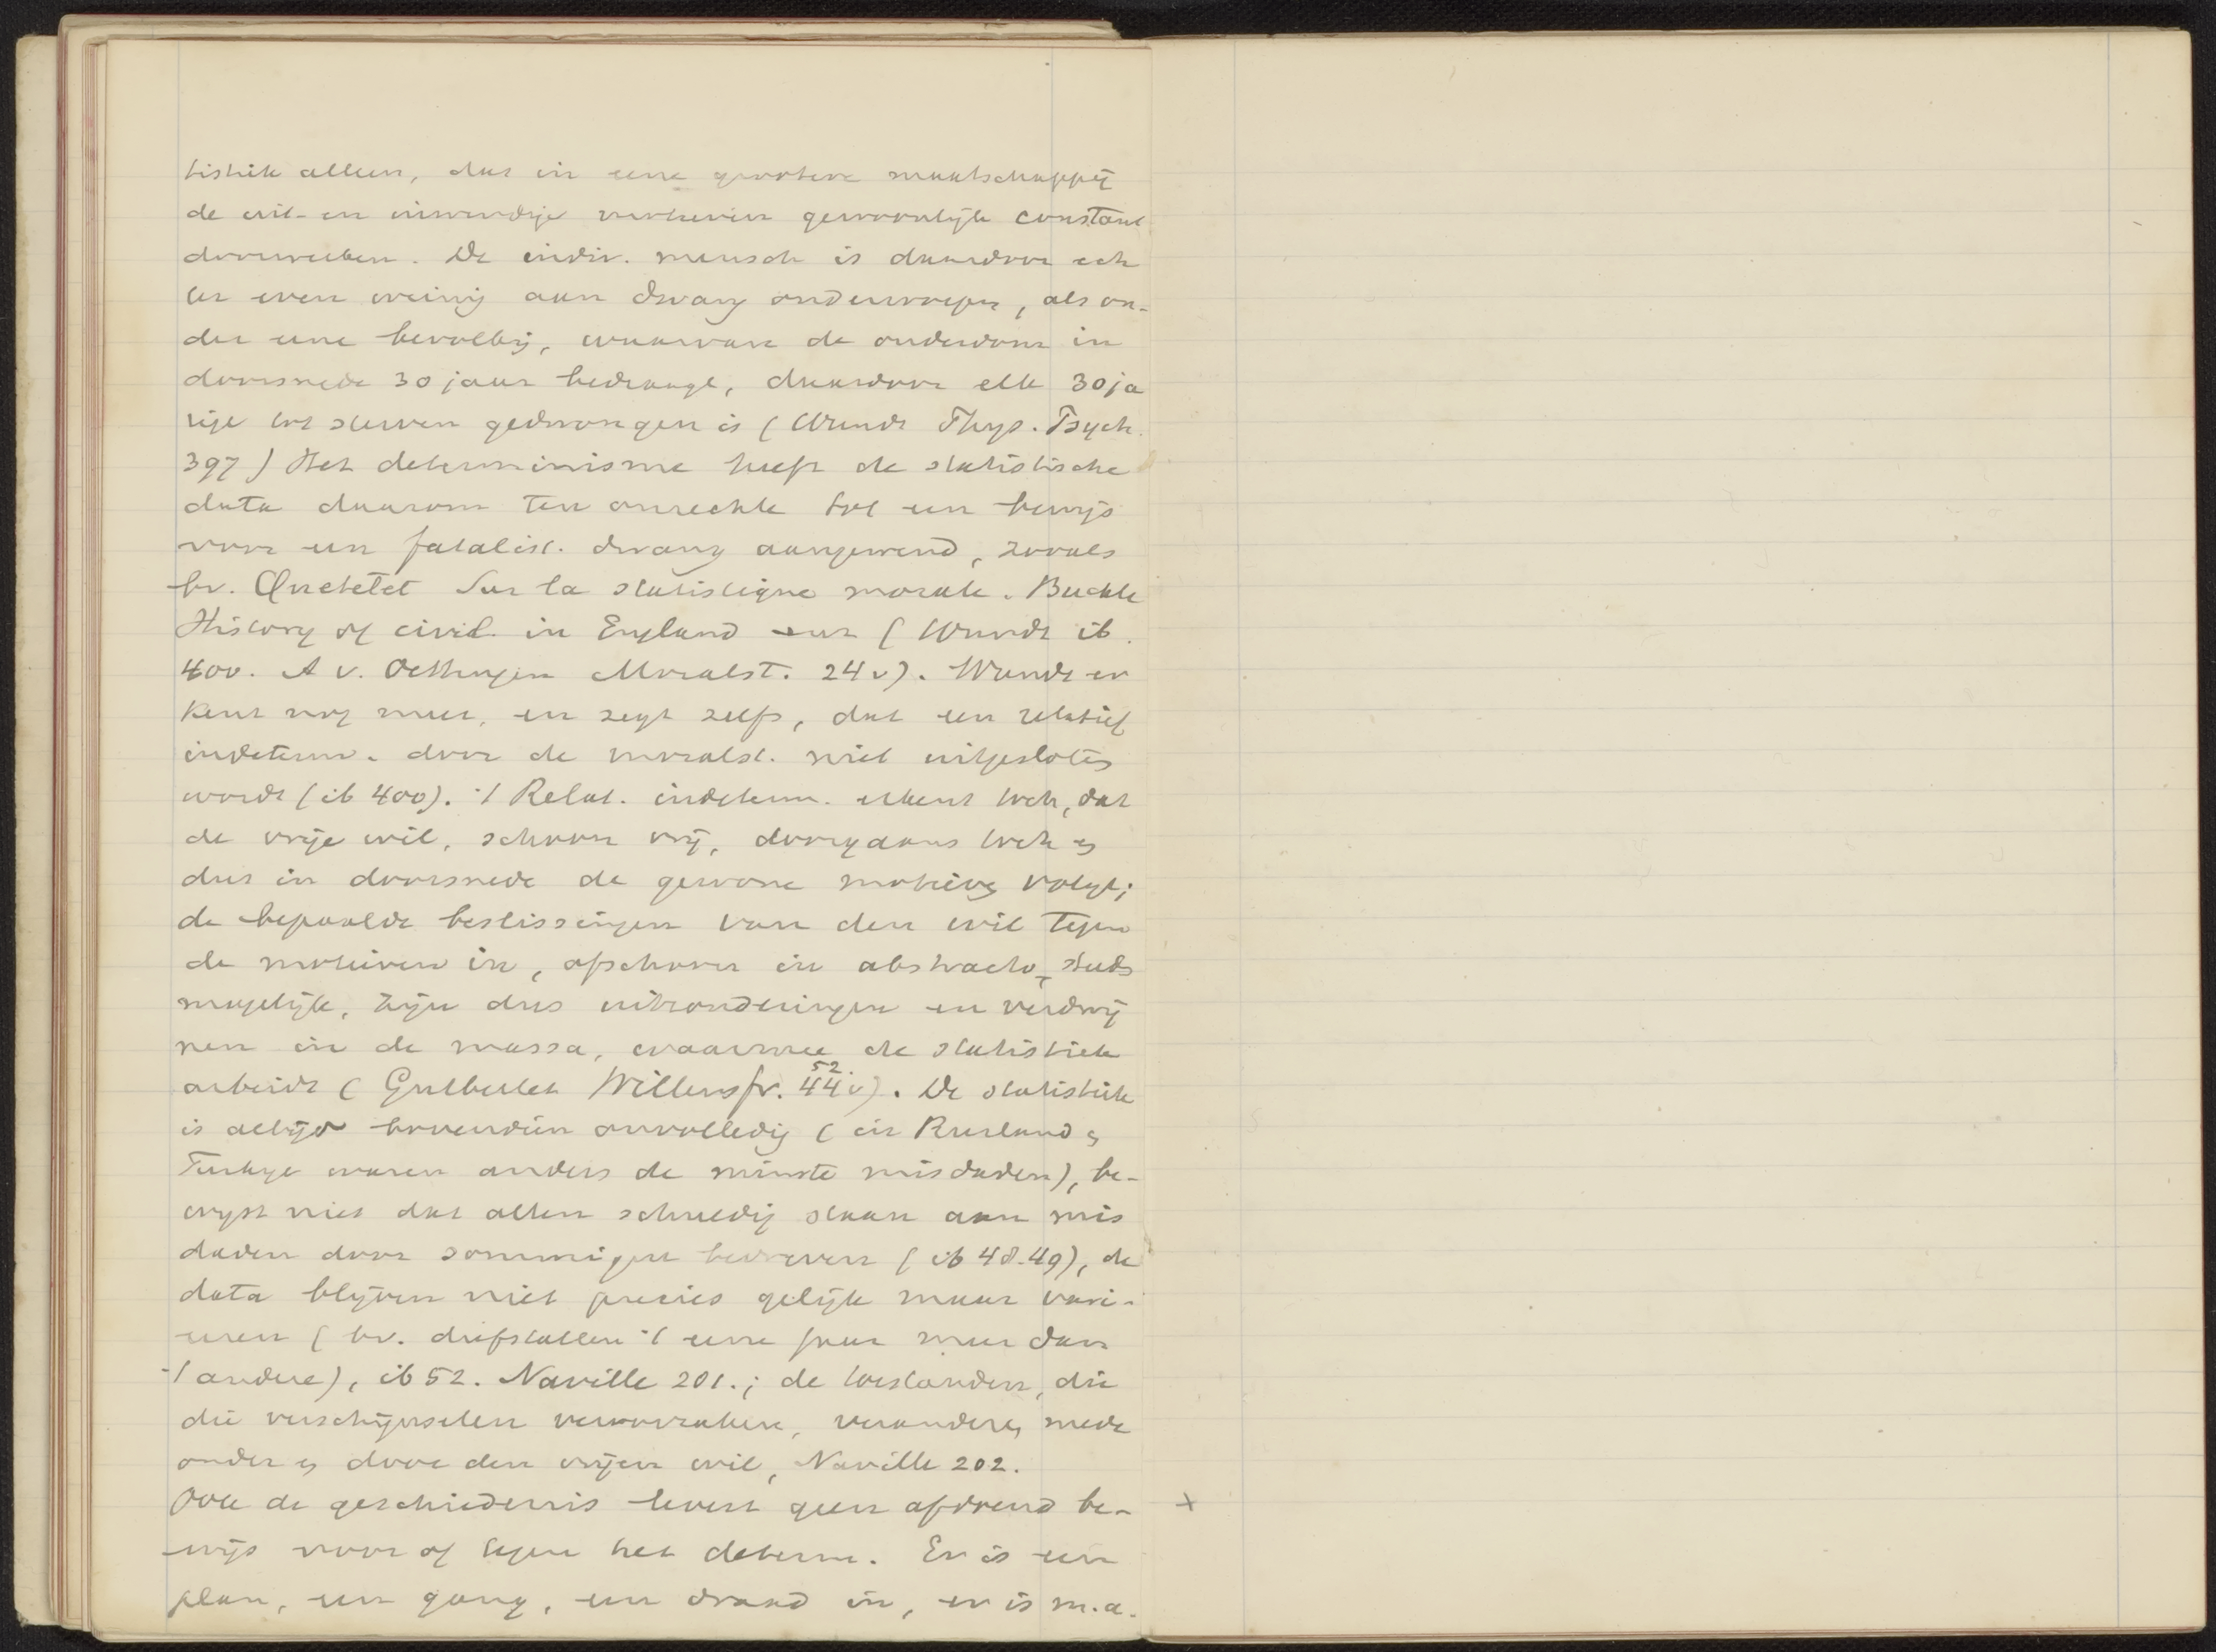 tistiek alleen, dat in eene grootere maatschappij
de uit- en inwendige motieven gewoonlijk constant
doorwerken. De indiv. mensch is daardoor ech
ter even weinig aan dwang onderworpen, als on-
der eene bevolking, waarvan de ouderdom in
doorsnede 30 jaar bedraagt, daardoor elk 30ja
rige tot sterven gedwongen is (Wundt Phys. Psych.
397) Het determinisme heeft de statistische
data daarom ten onrechte tot een bewijs
voor een fatalist. dwang aangewend, zooals
bv. Quetelet Sur la statistique morale. Buckle
History of civil. in England (Wundt ib.
400. A v. Oettingen Moralst. 24v). Wundt er
kent nog meer, en zegt zelfs, dat een relatief
indeterm. door de moralst. niet uitgesloten
wordt (ib 400). 't Relat. indeterm. erkent toch, dat
de vrije wil, schoon vrij, doorgaans toch en
dus in doorsnede de gewone motieven volgt;
de bepaalde beslissingen van den wil tegen
de motieven in, ofschoon in abstracto steeds
mogelijk, zijn dus uitzonderingen en verdwij
nen in de massa, waarmee de statistiek
52.
arbeidt (Gutberlet Willensfr. 44v). De statistiek
is altijd bovendien onvolledig (in Rusland en
Turkye waren anders de minste misdaden), be-
wijst niet dat allen schuldig staan aan mis
daden door sommigen bedreven (ib 48-49), de
data blijven niet precies gelijk maar vari-
eeren (bv. diefstallen 't eene jaar meer dan
't andere), ib 52. Naville 201.; de toestanden, die
die verschijnselen veroorzaken, veranderen mede
onder en door den vrijen wil, Naville 202.
Ook de geschiedenis levert geen afdoend be- x
wijs voor of tegen het determ. Er is een
plan, een gang, een draad in, er is m.a.